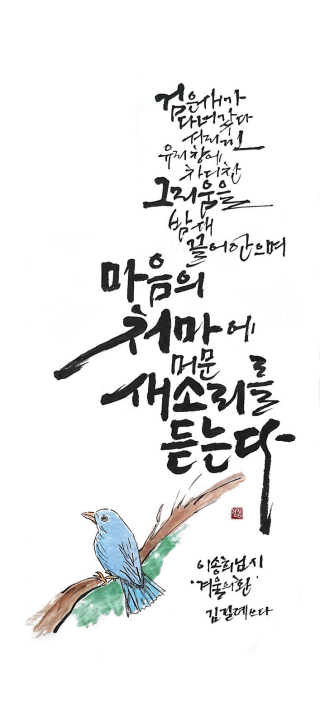 검은새가
다녀갔다
서리낀
유리창에
차디찬
그리움을
밤새
끌어안으며
마음의
처마에
머문
새소리를
듣는다
이송희님 시
'겨울의 환'
김길례 쓰다